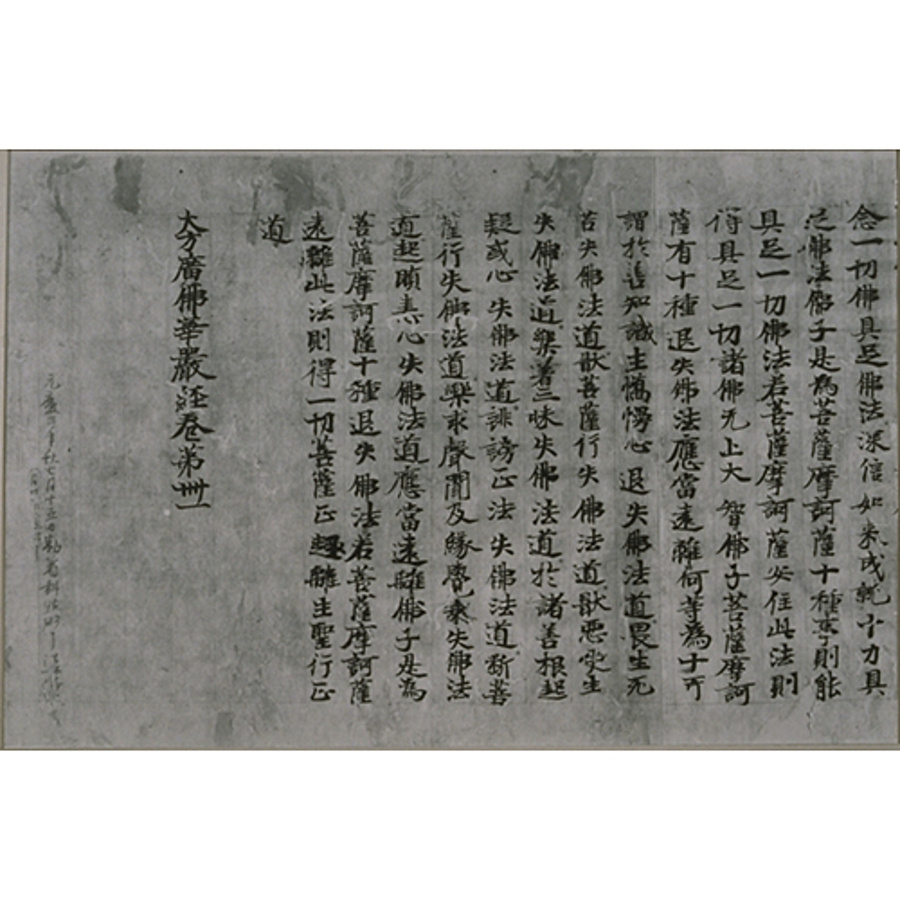 念一切佛具足佛法深信如来成就十力具
足佛法佛子是為菩薩摩訶薩十種
則能
具足一切佛法若菩薩摩訶薩安住此法則
得具足一切諸佛无上大智佛子菩薩摩訶
薩有十種退失佛法應當遠離何等為十所
謂於善知識生憍慢心退失佛法道畏生死
苦失佛法道猒菩薩行失佛法道猒惡受生
失佛法道樂著三昧失佛法道於諸善根起
疑或心失佛法道誹謗正法失佛法道斷菩
薩行失佛法道樂求聲聞及緣覺乘失佛法
道起瞋恚心失佛法道應當遠離佛子是為
菩薩摩訶薩十種退失佛法若菩薩摩訶薩
遠離此法則得一切菩薩正趣離生聖行正
道
大方廣佛華嚴經卷第卅一